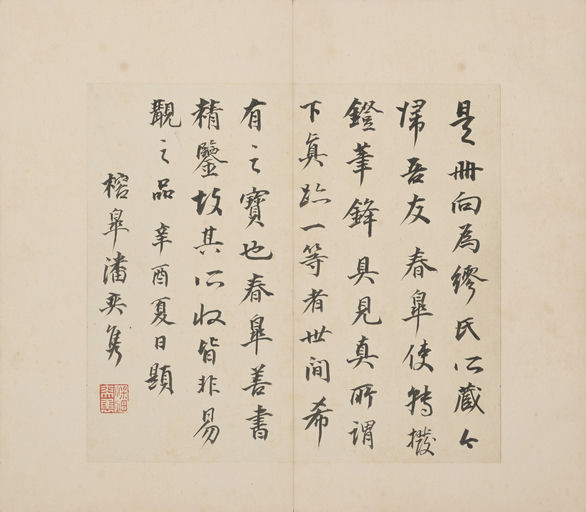 是冊向為繆氏所藏今
歸吾友春皐使轉撥
鐙筆鋒具見真所謂
下真跡一等者世間希
有之寶也春皐善書
精鑒故其所收皆非易
覯之品辛酉夏日題
榕皐潘奕雋